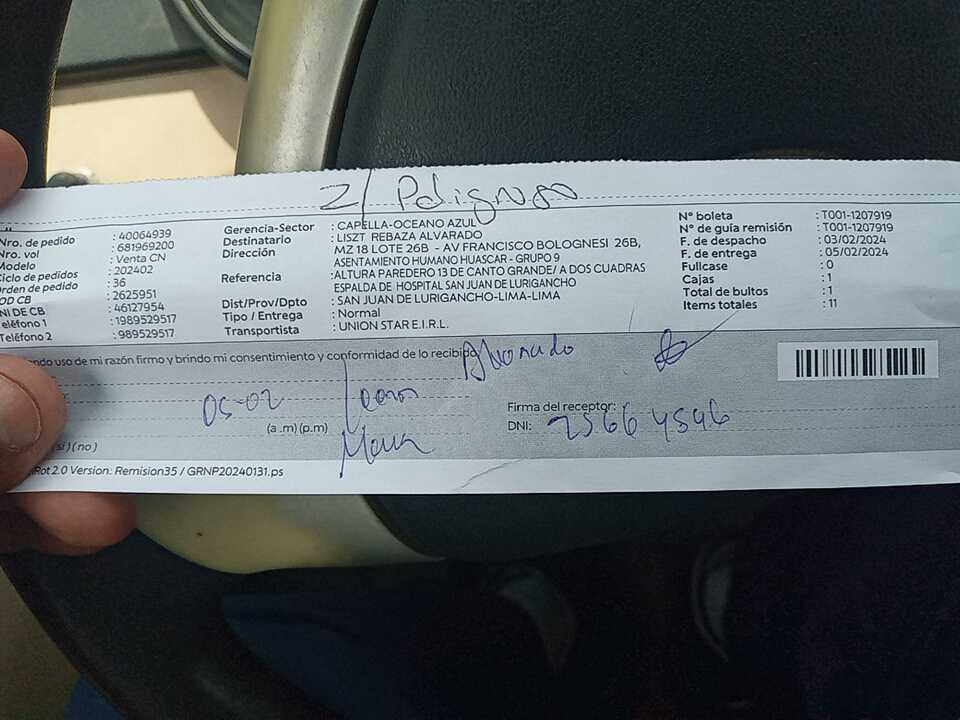 Z/ Peligroso
Nro. de pedido : 40064939
Nro. vol : 681969200
Modelo : Venta CN
Ciclo de pedidos : 202402
Orden de pedido : 36
OD CB : 2625951
NI DE CB : 46127954
Teléfono 1 : 1989529517
Teléfono 2 : 989529517
Gerencia-Sector : CAPELLA-OCEANO AZUL
Destinatario : LISZT REBAZA ALVARADO
Dirección : MZ 18 LOTE 26B - AV FRANCISCO BOLOGNESI 26B,
ASENTAMIENTO HUMANO HUASCAR - GRUPO 9
Referencia : ALTURA PAREDERO 13 DE CANTO GRANDE/ A DOS CUADRAS
ESPALDA DE HOSPITAL SAN JUAN DE LURIGANCHO
Dist/Prov/Dpto : SAN JUAN DE LURIGANCHO-LIMA-LIMA
Tipo / Entrega : Normal
Transportista : UNION STAR E.I.R.L.
N° boleta : T001-1207919
N° de guía remisión : T001-1207919
F. de despacho : 03/02/2024
F. de entrega : 05/02/2024
Fullcase : 0
Cajas : 1
Total de bultos : 1
Items totales : 11
ando uso de mi razón firmo y brindo mi consentimiento y conformidad de lo recibido
Alvarado
05-02
(a .m) (p.m)
Firma del receptor:
DNI: 25664546
( si ) ( no )
Rot2.0 Version: Remision35 / GRNP20240131.ps